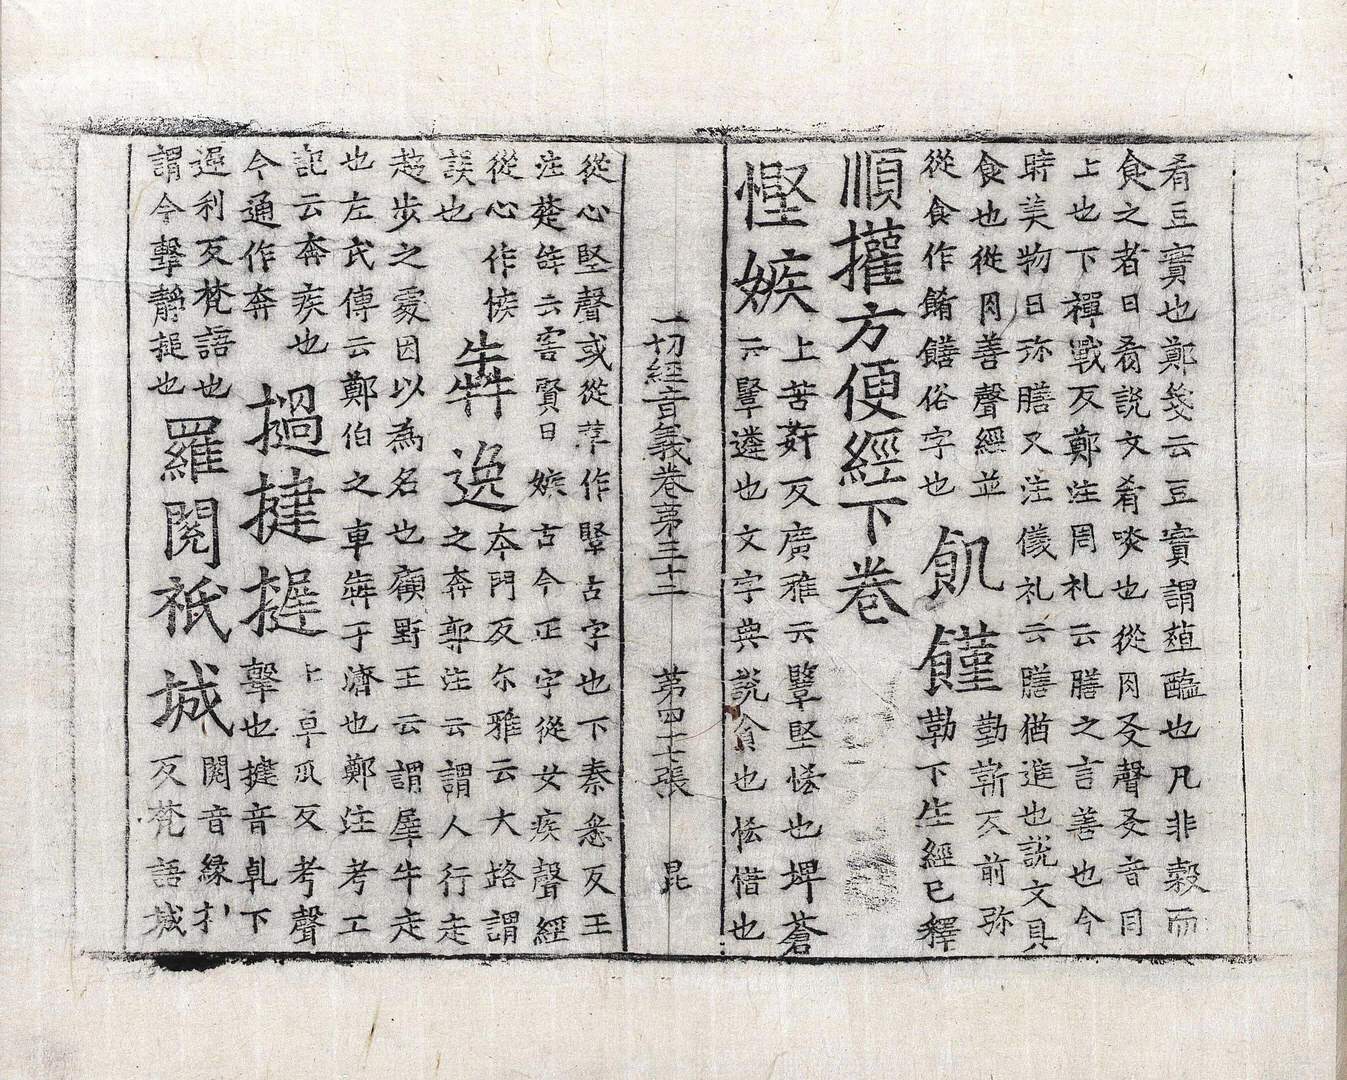 肴豆實也鄭箋云豆實謂葅醢也凡非穀而
食之者曰肴說文肴啖也從肉爻聲爻音同
上也下禪戰反鄭注周礼云膳之言善也今
時美物曰珎膳又注儀礼云膳猶進也說文具
食也從肉善聲經並
從食作餚饍俗字也
飢饉
勤靳反前弥
勒下生經已釋
順權方便經下卷
慳嫉
上苦姧反廣雅云掔堅恡也埤蒼
云掔遴也文字典說貪也恡惜也
一切經音義卷第三十二 第四十張 昆
從心堅聲或從革作掔古字也下秦悉反王
注楚辝云害賢曰嫉古今正字從女疾聲經
從心作㑵
誤也
犇逸
本門反尒雅云大路謂
之奔郭注云謂人行走
趍步之處因以為名也顧野王云謂犀牛走
也左氏傳云鄭伯之車犇于濟也鄭注考工
記云奔疾也
今通作奔
撾揵搥
上卓瓜反考聲
擊也揵音乹下
遅利反梵語也
謂今擊靜搥也
羅閱祇城
閱音緣
反梵語城